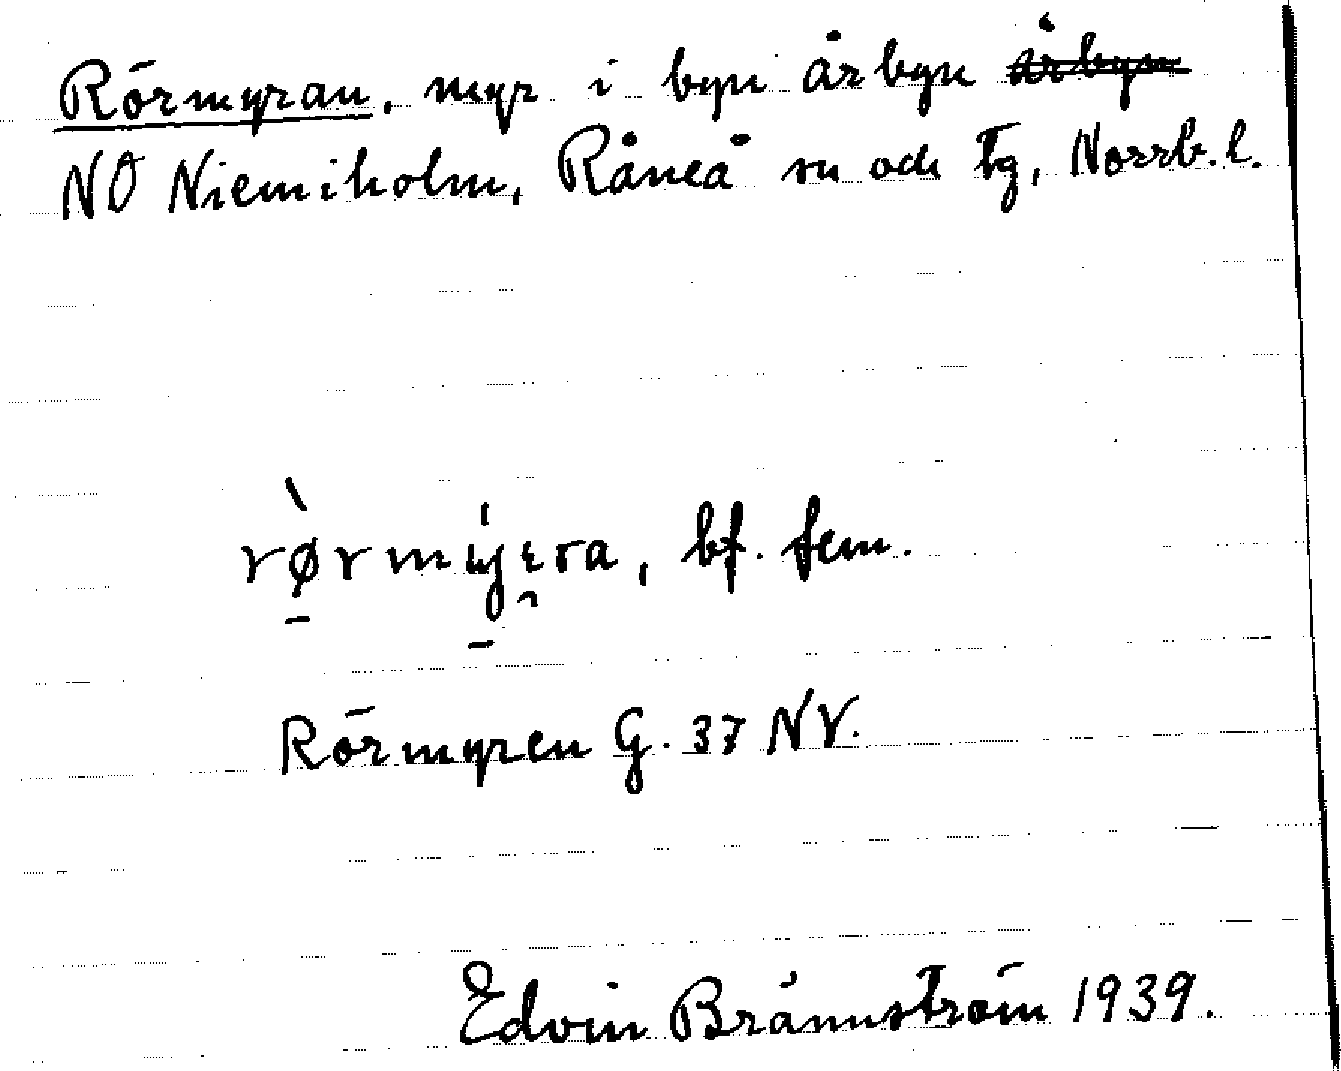 Rörmyran, myr i byn Årbyn ~~årbyn~~
NO Niemiholm, Råneå sn och tg, Norrb. l.
rø̠̀rmý̠ɛ̯ra, bf. fem.
Rörmyren G. 37 NV.
Edvin Brännström 1939.